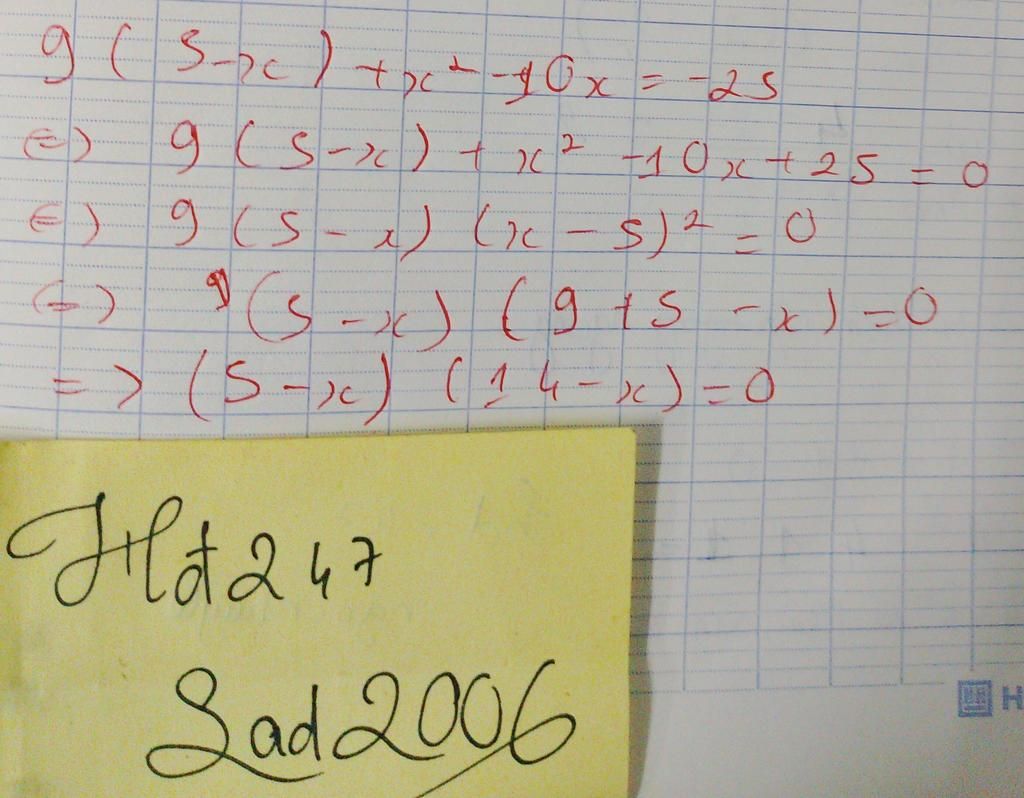 9 ( 5-x ) + x² - 10x = -25
<=> 9 ( 5-x ) + x² - 10x + 25 = 0
<=> 9 ( 5 - x ) ( x - 5 )² = 0
<=> ( 5 - x ) ( 9 + 5 - x ) = 0
=> ( 5 - x ) ( 14 - x ) = 0
Hld247
Sad2006
H